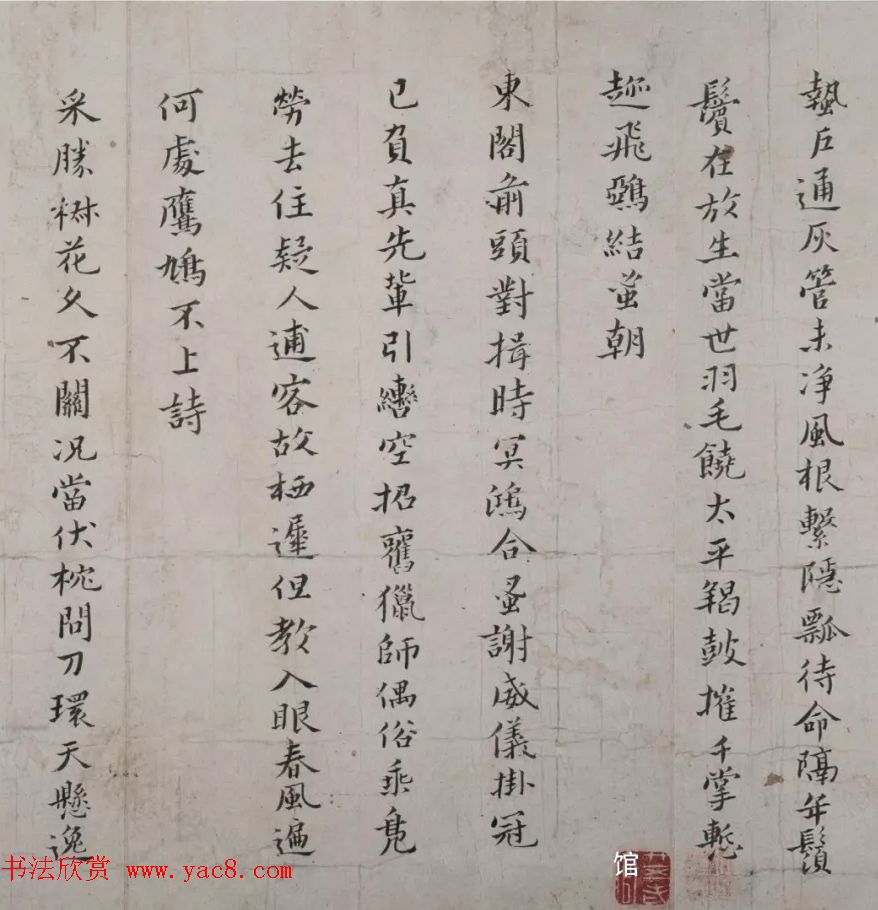 蟄戶通灰管未净風根繫隱瓢待命隔年鬚
鬢在放生當世羽毛饒太平羯鼓摧千掌慙
趂飛鵶結蚤朝
東閣前頭對揖時冥鴻合蚤謝威儀掛冠
已負真先輩引轡空招舊獵師偶俗乘鳧
勞去住疑人逋客故栖遲但教入眼春風遍
何處鷹鳩不上詩
采勝樹花久不關况當伏枕問刀環天懸逸
馆
书法欣赏 www.yac8.com